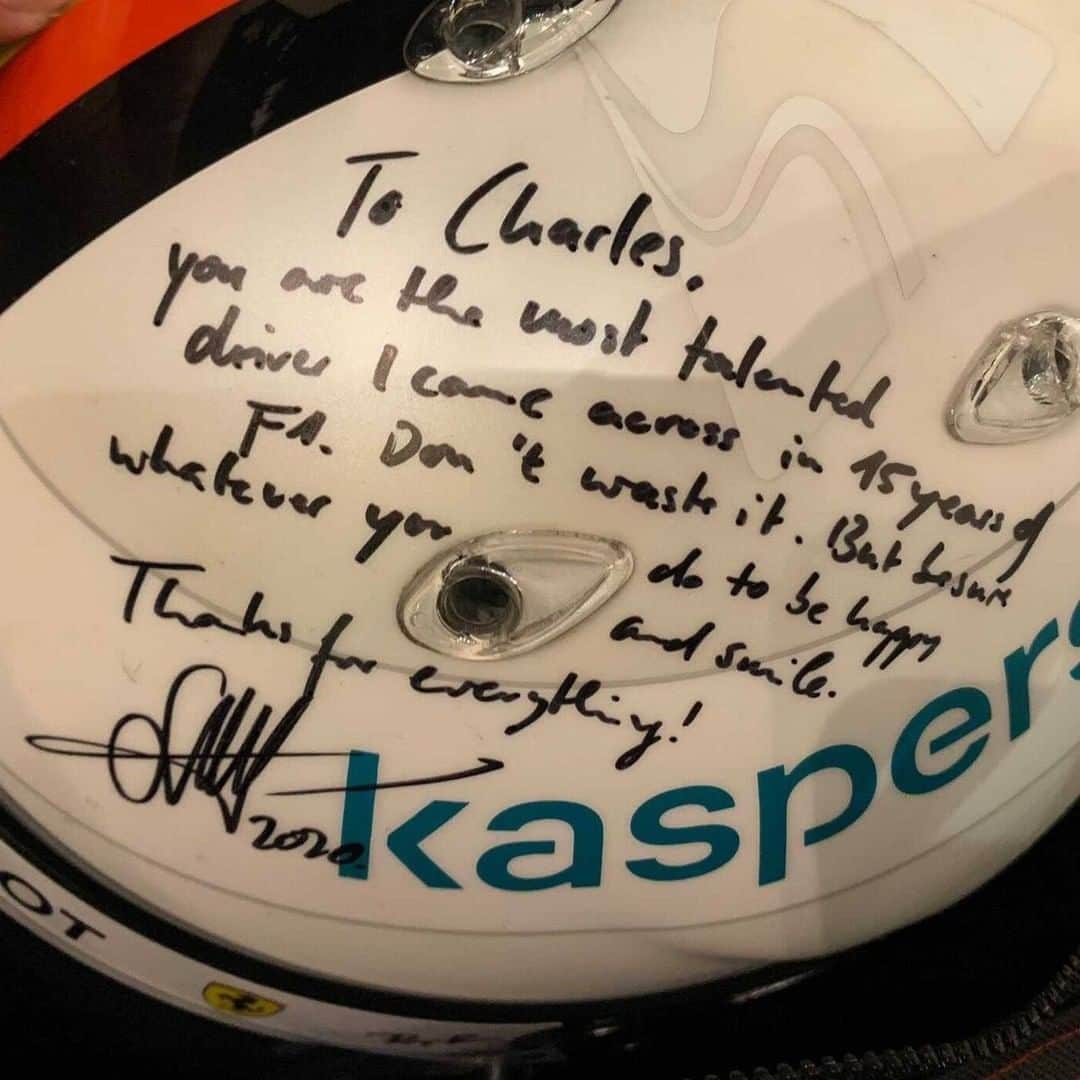 To Charles.
you are the most talented
driver I came across in 15 years of
F1. Don't waste it. But be sure
whatever you do to be happy
and smile.
Thanks for everything!
2020.
kaspers
OT